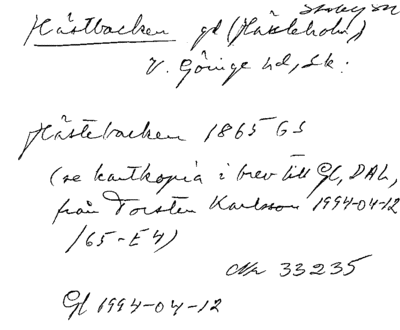 Hästbacken gd (Hässleholm)
V. Göinge hd, Sk.
Hästebacken 1865 GS
(se kartkopia i brev till Gl, DAL,
från Torsten Karlsson 1994-04-12
/65-E4)
Nr 33235
Gl 1994-04-12